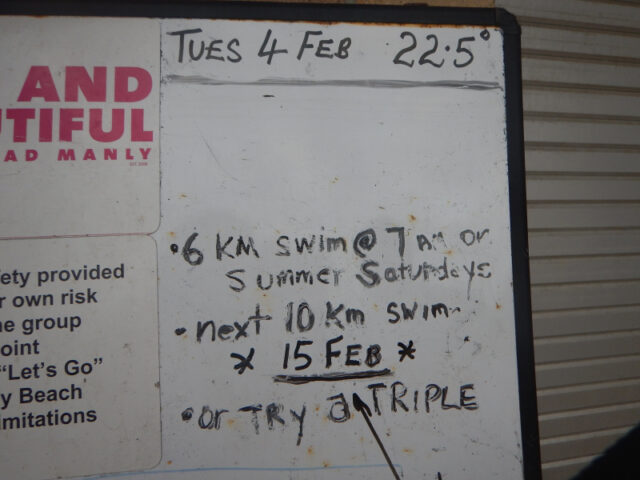 AND
TIFUL
AD MANLY
ety provided
r own risk
e group
oint
"Let's Go"
y Beach
mitations
TUES 4 FEB 22.5°
• 6 KM SWIM @ 7 AM or
Summer Saturdays
• next 10 Km swim
* 15 FEB *
• or TRY a TRIPLE